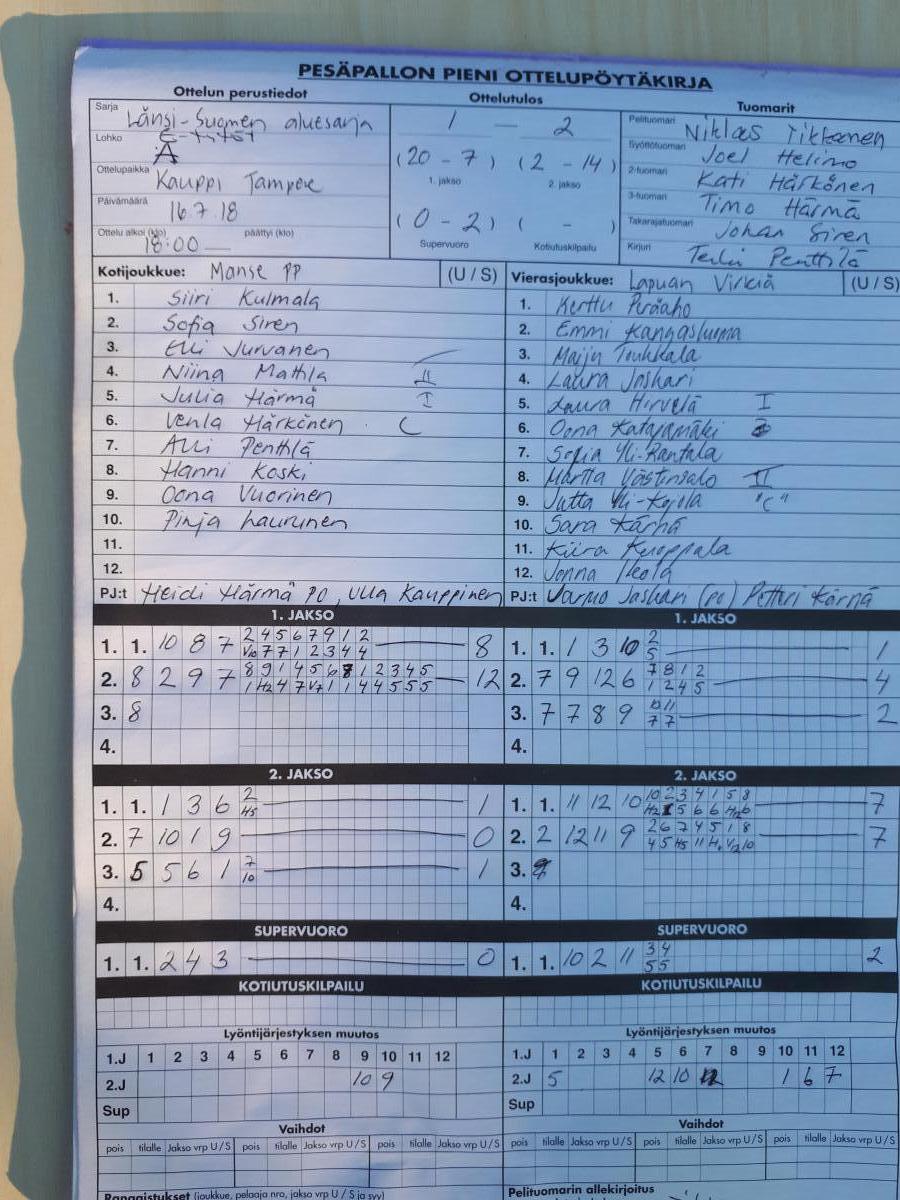 PESÄPALLON PIENI OTTELUPÖYTÄKIRJA
Ottelun perustiedot
Sarja Länsi-Suomen aluesarja
Lohko
A
Ottelupaikka Kauppi Tampere
Päivämäärä 16.7.18
Ottelu alkoi (klo) 18:00 päättyi (klo)
Ottelutulos
1 - 2
(20 - 7) (2 - 14)
1. jakso 2. jakso
(0 - 2) ( - )
Supervuoro Kotiutuskilpailu
Tuomarit
Pelituomari Niklas Tikkanen
Syöttötuomari Joel Helimo
2-tuomari Kati Härkönen
3-tuomari Timo Härmä
Takarajatuomari Johan Siren
Kirjuri Penttilä
Kotijoukkue: Manse PP (U / S)
1. Siiri Kulmala
2. Sofia Siren
3. Elli Jurvanen
4. Niina Mattila II
5. Julia Härmä I
6. Venla Härkönen C
7. Alli Penttilä
8. Hanni Koski
9. Oona Vuorinen
10. Pinja Laurunen
11.
12.
PJ:t Heidi Härmä PO, Ulla Kauppinen
Vierasjoukkue: Lapuan Virkiä (U / S)
1. Kerttu Peräaho
2. Emmi Kangasluoma
3. Maiju Toukkala
4. Laura Joskari
5. Laura Hirvelä I
6. Oona Katajamäki
7. Sofia Yli-Kantala
8. Martta Västinsalo II
9. Jutta Yli-Kojola "C"
10. Sara Kärnä
11. Kiira Kuoppala
12. Jonna Ikola
PJ:t Jarmo Joskari (po) Petteri Kärnä
1. JAKSO
1. 1. 10 8 7 2 4 5 6 7 9 1 2 8
7 7 1 2 3 4 4
2. 8 2 9 7 8 9 1 4 5 6 8 1 2 3 4 5 12
1 H2 4 7 V7 1 1 4 4 5 5 5
3. 8
4.
1. JAKSO
1. 1. 1 3 10 2 1
5
2. 7 9 12 6 7 8 1 2 4
1 2 4 5
3. 7 7 8 9 10 11 2
7 7
4.
2. JAKSO
1. 1. 1 3 6 2 1
H5
2. 7 10 1 9 0
3. 5 5 6 1 7 1
10
4.
2. JAKSO
1. 1. 11 12 10 10 2 3 4 1 5 8 7
H2 1 5 6 6 H12 6
2. 2 12 11 9 2 6 7 4 5 1 8 7
4 5 H5 11 V12 10
3.
4.
SUPERVUORO
1. 1. 2 4 3 0
SUPERVUORO
1. 1. 10 2 11 3 4 2
5 5
KOTIUTUSKILPAILU
KOTIUTUSKILPAILU
Lyöntijärjestyksen muutos
1.J 1 2 3 4 5 6 7 8 9 10 11 12
2.J 10 9
Sup
Lyöntijärjestyksen muutos
1.J 1 2 3 4 5 6 7 8 9 10 11 12
2.J 5 12 10 1 6 7
Sup
Vaihdot
pois tilalle Jakso vrp U / S pois tilalle Jakso vrp U / S pois tilalle Jakso vrp U / S
Vaihdot
pois tilalle Jakso vrp U / S pois tilalle Jakso vrp U / S pois tilalle Jakso vrp U / S
Rangaistukset (joukkue, pelaaja nro, jakso vrp U / S ja syy)
Pelituomarin allekirjoitus